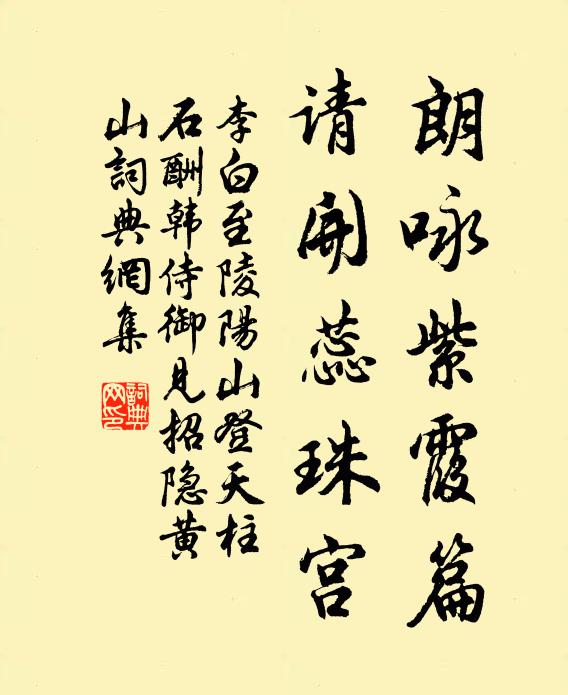 朗咏紫霞篇
请開蕊珠宫
李白至陵陽山登天柱
石酬韩侍御见招隐黄
山詞典網集
詞典網印